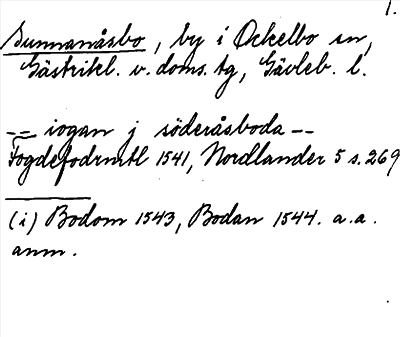 1.
Sunnanåsbo, by i Ockelbo sn,
Gästrikl. v. doms. tg, Gävleb. l.
-- iogan j söderåsboda --
Fogdefodrmtl 1541, Nordlander 5 s. 269
(i) Bodom 1543, Bodan 1544. a. a.
anm.